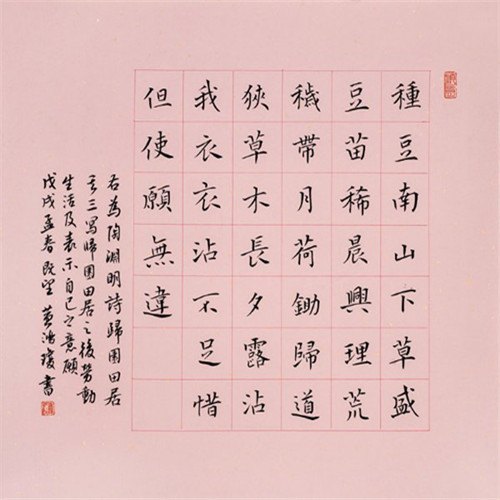 種豆南山下草盛
豆苗稀晨興理荒
穢帶月荷鋤歸道
狹草木長夕露沾
我衣衣沾不足惜
但使願無違
右為陶淵明詩歸園田居
其三寫歸園田居之後勞動
生活及表示自己之意願
戊戌孟春既望 黃鴻書